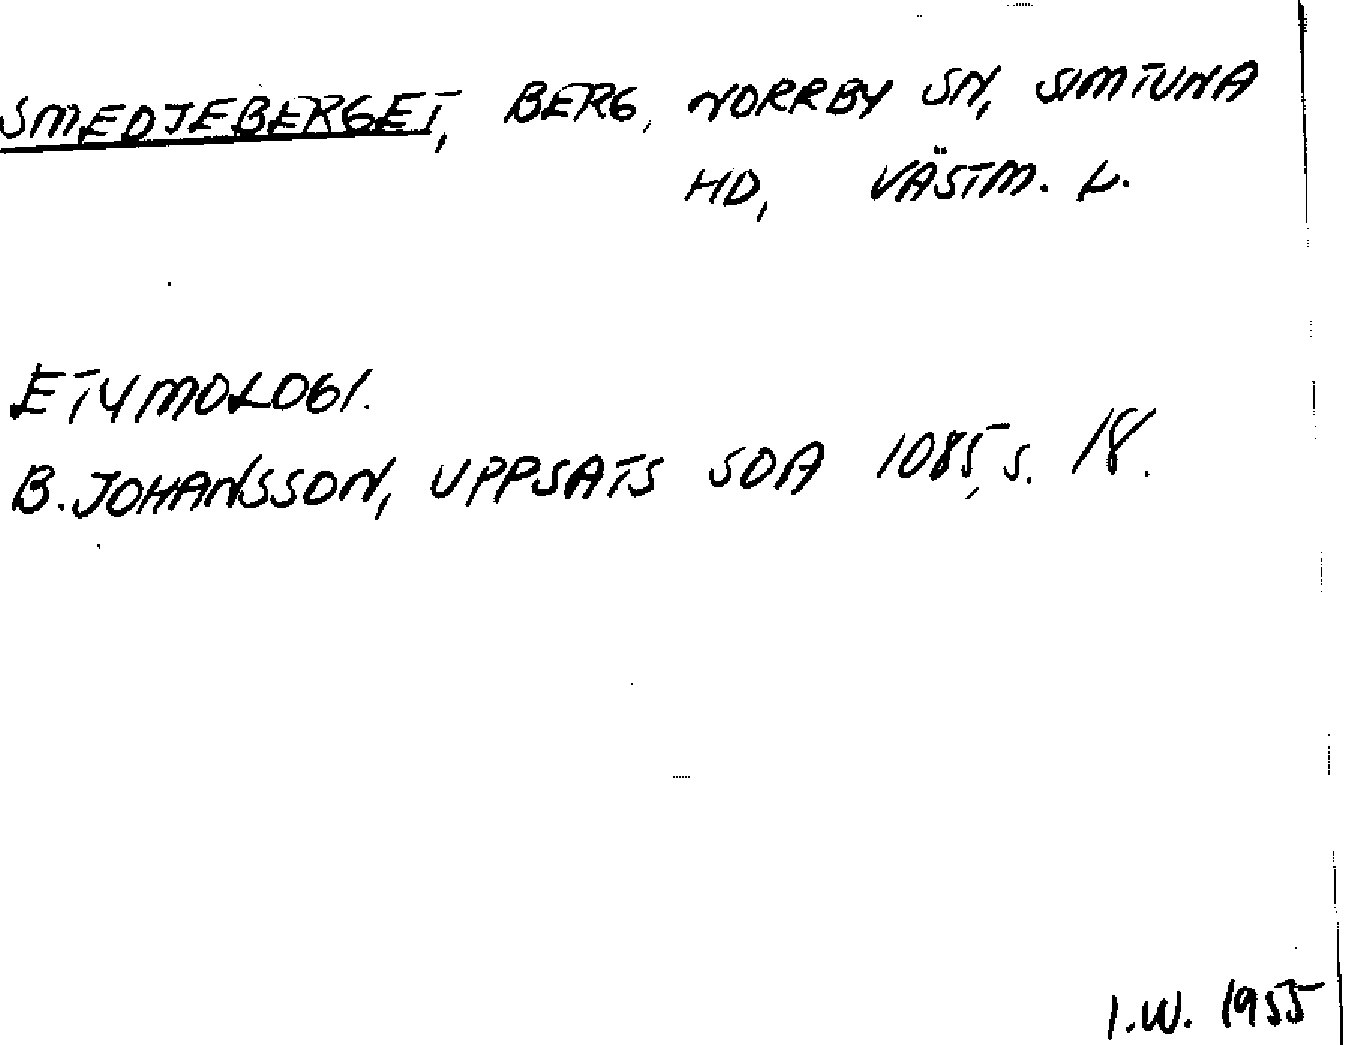 SMEDJEBERGET, BERG, NORRBY SN, SIMTUNA
HD, VÄSTM. L.
ETYMOLOGI.
B. JOHANSSON, UPPSATS SOA 1085, S. 18.
I.W. 1955